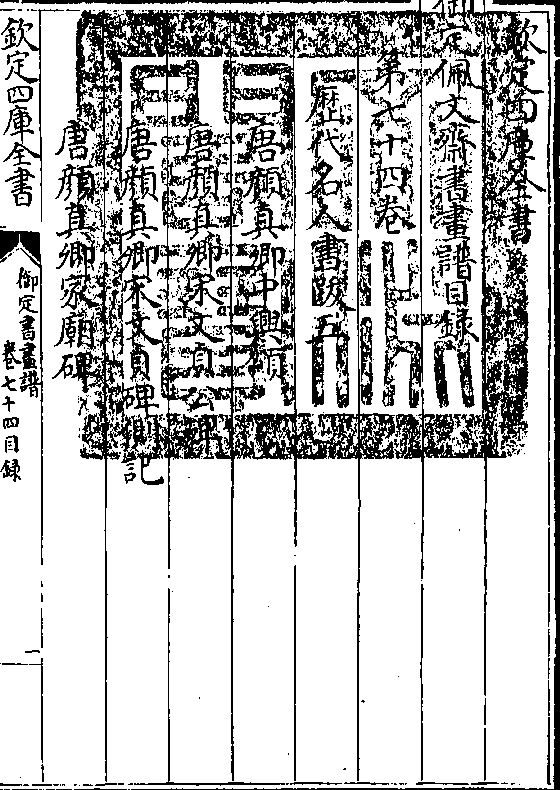 欽定四庫全書
御定佩文齋書畫譜目録
第七十四卷
歴代名人書跋五
唐顔真卿中興頌
唐顔真卿宋文貞公碑
唐顔真卿宋文貞碑側記
唐顔真卿家廟碑
欽定四庫全書
御定書畫譜
卷七十四目録
一